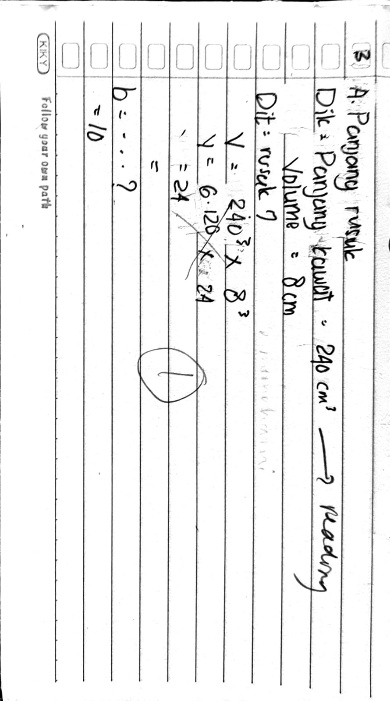 B A. Panjang rusuk
Dik : Panjang kawat = 240 cm³ → Reading
Volume = 8 cm
Dit = rusuk ?
V = 240³ x 8³
V = 6.120 x 24
= 24
=
1
b = .... ?
= 10
KIKY
Follow your own path